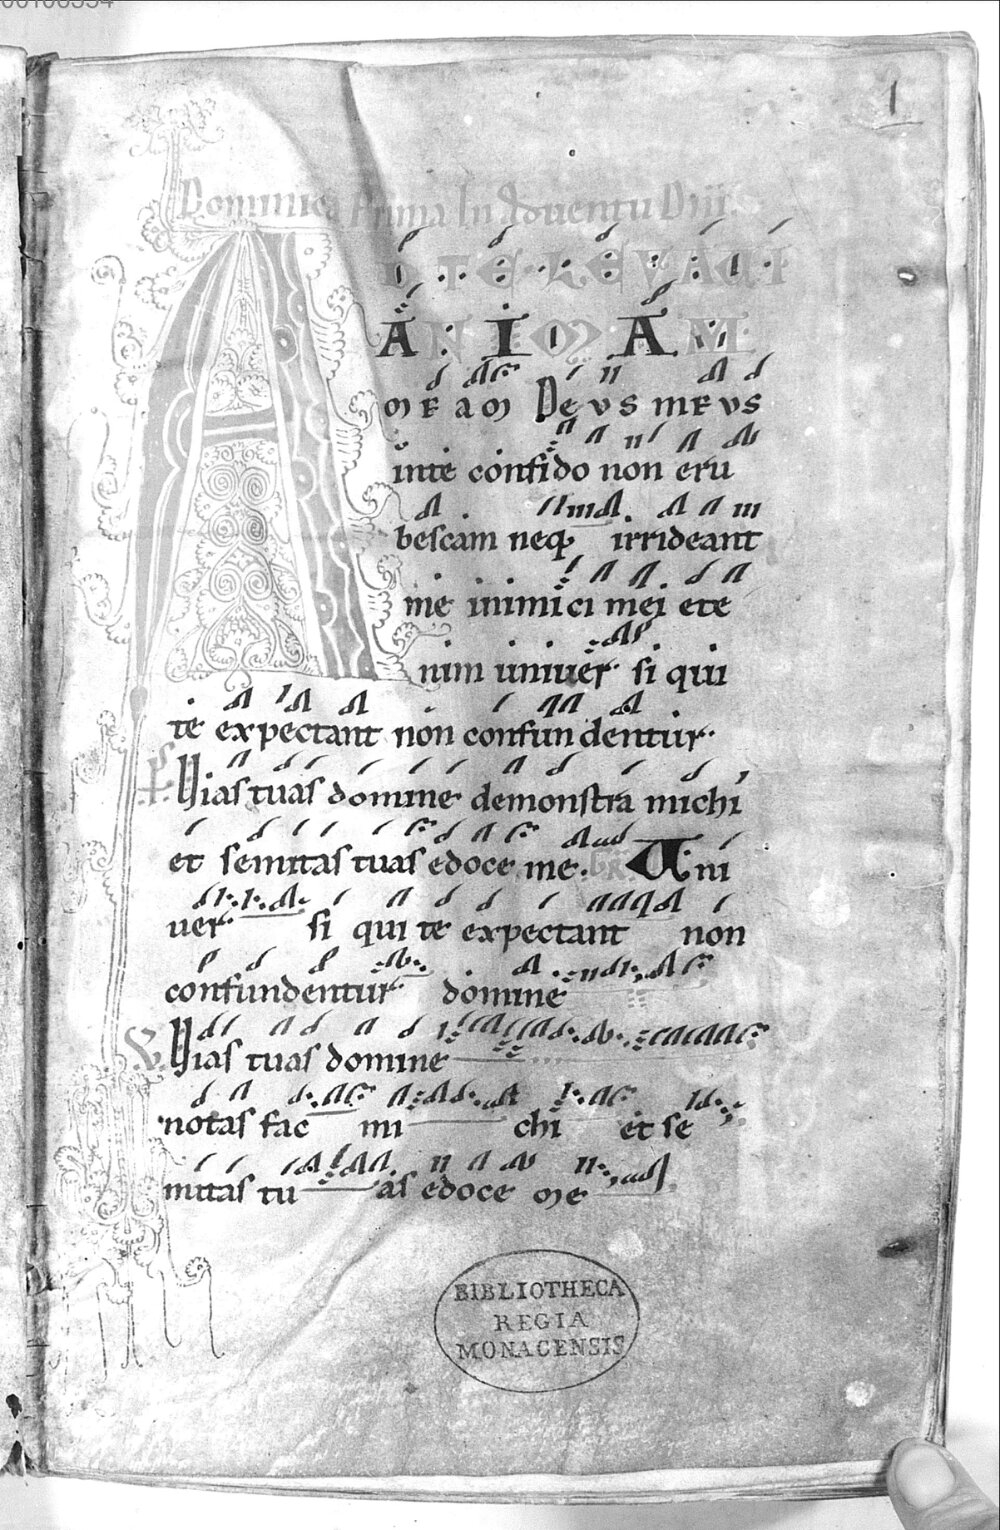 1
Dominica Prima In Aduentu Dñi.
AD TE LEVAVI
ANIMAM
MEAM DEUS MEUS
inte confido non eru
bescam neq; irrideant
me inimici mei ete
nim uniuer si qui
te expectant non confundentur.
Ps Vias tuas domine demonstra michi
et semitas tuas edoce me. GR Uni
uer si qui te expectant non
confundentur domine
V. Vias tuas domine
notas fac mi chi et se
mitas tu as edoce me
BIBLIOTHECA
REGIA
MONACENSIS